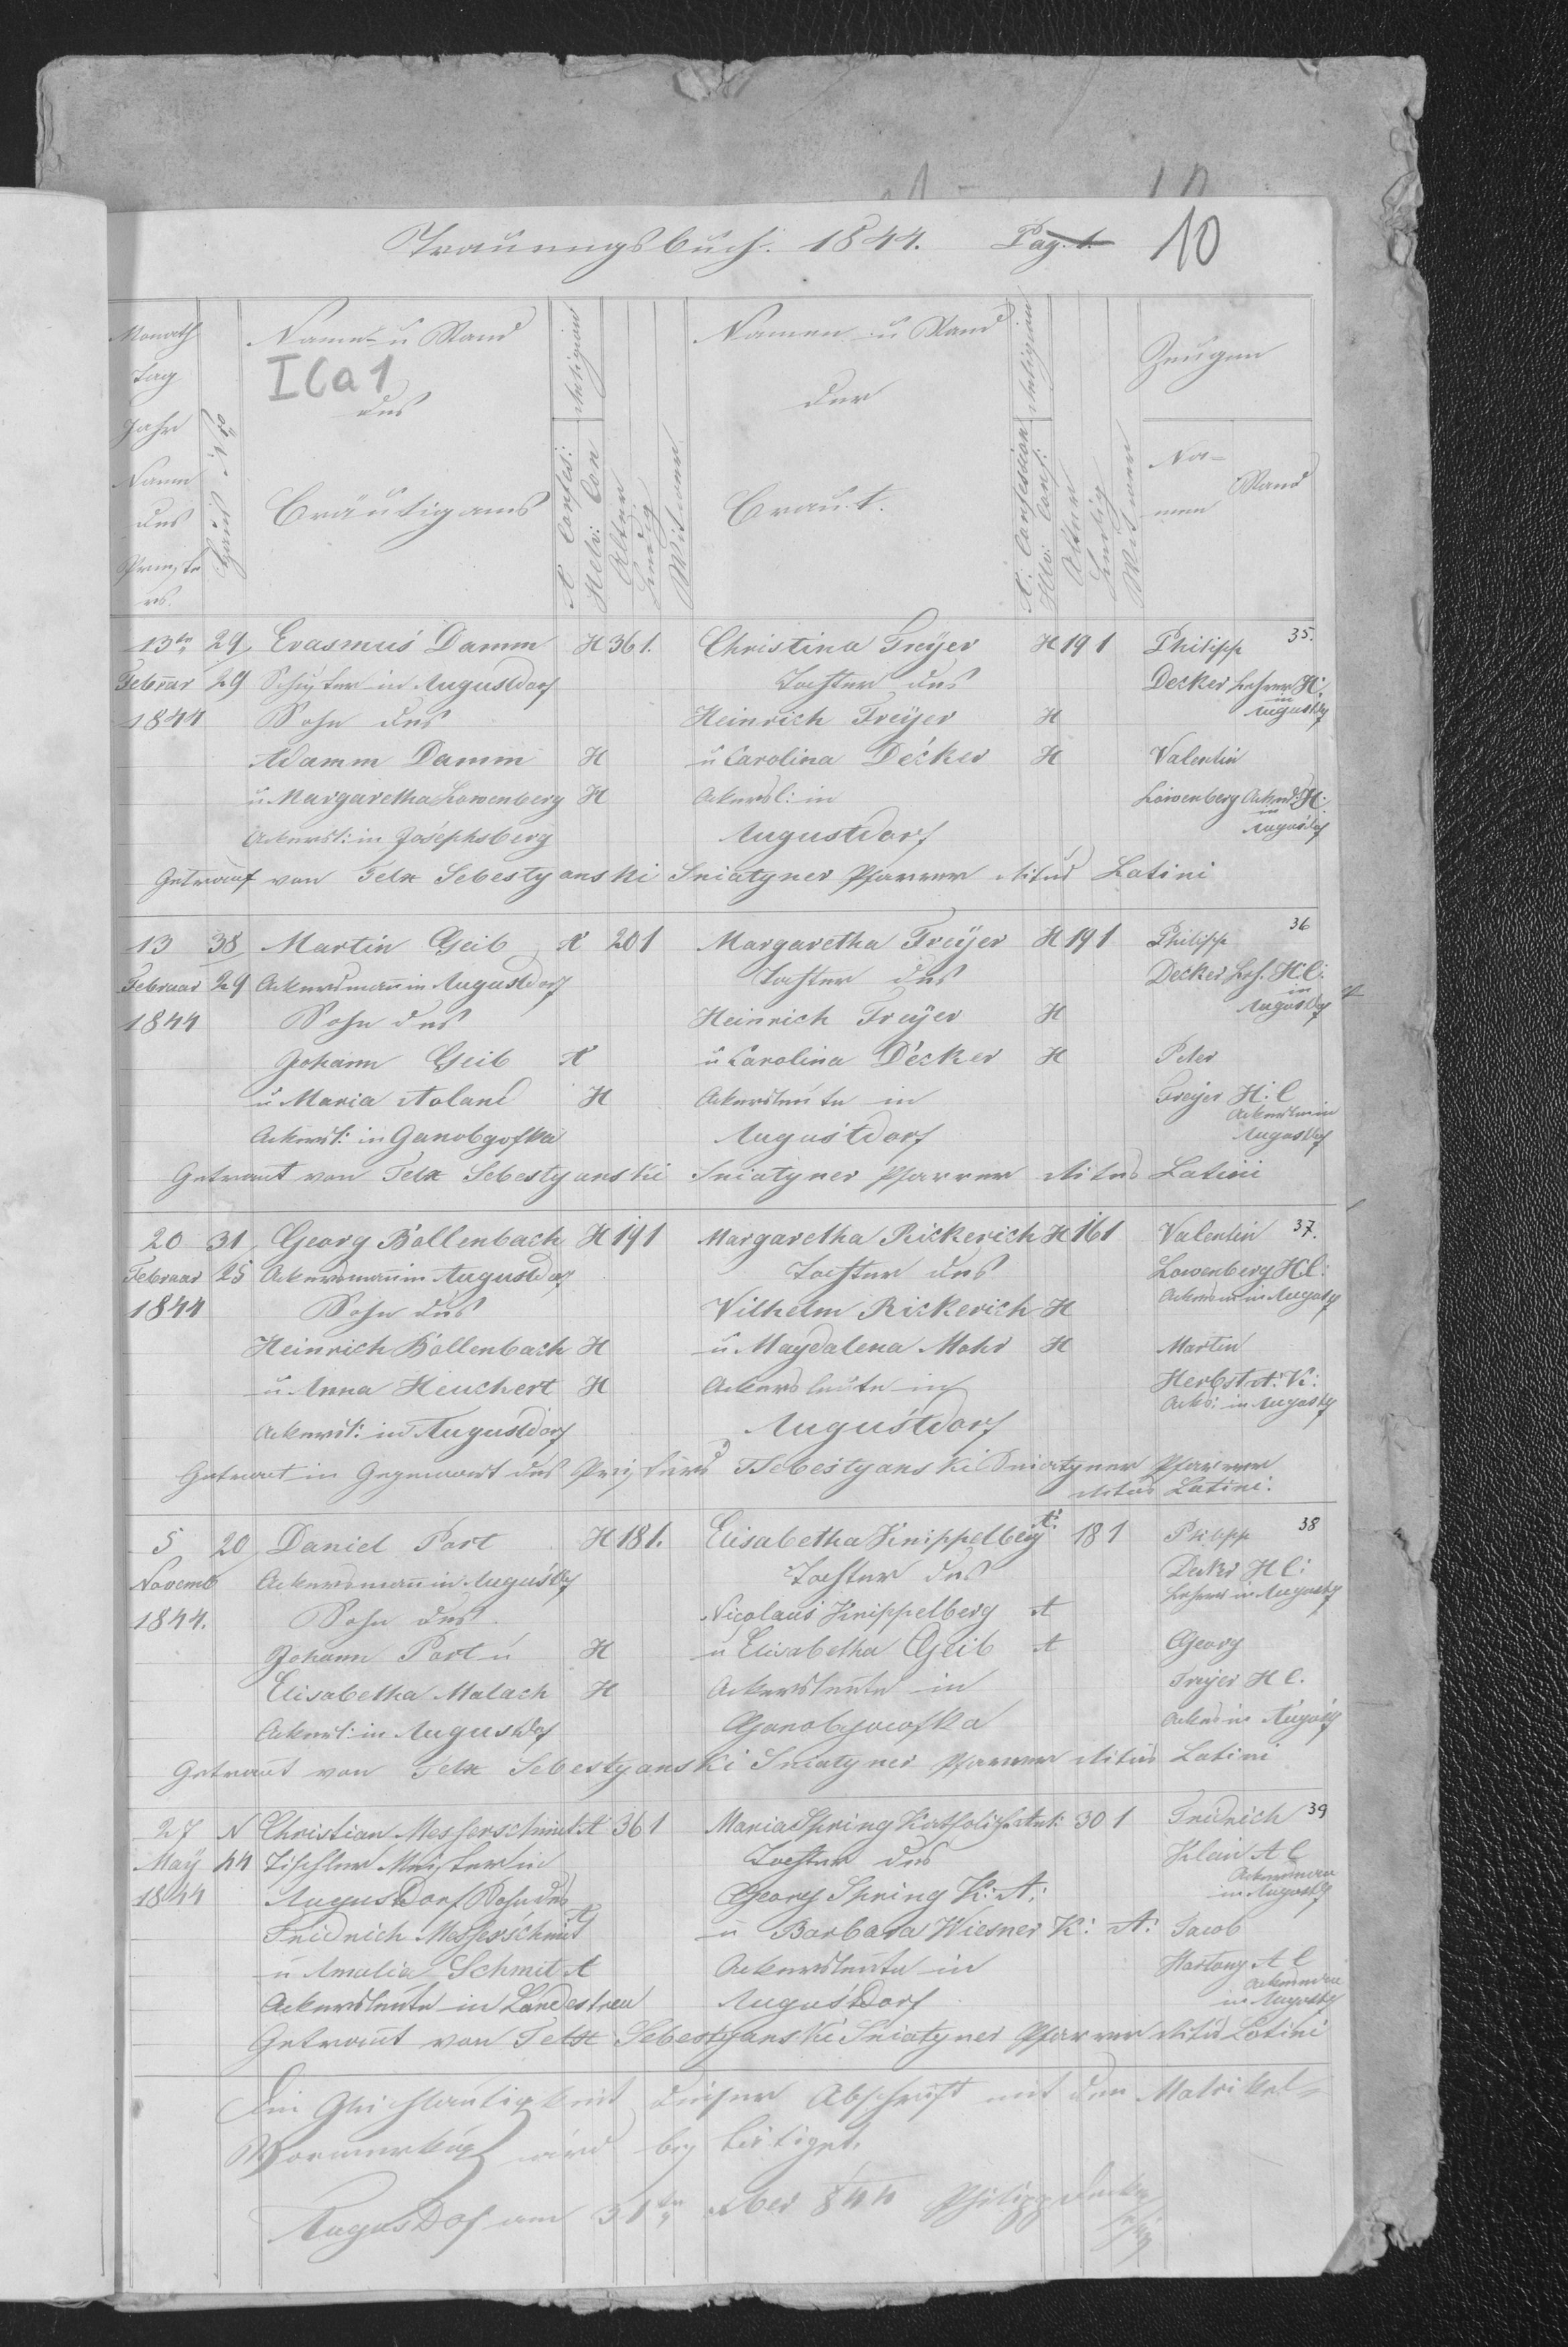 Trauungsbuch. 1844. Pag. 1. 10
Monath Tag Jahr Namen des Priesters
Haus Nro
Namen u Stand des Bräutigams
ICa1
Religion
A Confes: Helv: Con
Alter
Ledig
Witwer
Namen u Stand der Braut.
Religion
A: Confession Helv: Conf:
Alter
Ledig
Witwer
Zeugen
Namen Stand
13tn 29 Erasmus Damm H 36 1. Christina Freÿer H 19 1 Philipp 35.
Februar 29 in Augustdorf Tochter des Decker Lehrer H:
1844 Sohn des Heinrich Freÿer H in Augustdf
Adamm Damm H u Carolina Decker H Valentin
u Margaretha Lowenberg H Ackersl: in Löwenberg H:
Ackersl: in Josephsberg Augustdorf in Augustdf
Getraut von Felix Sebestyanski Sniatyner Pfarrer Ritus Latini
13 38 Martin Geib A 20 1 Margaretha Freÿer H 19 1 Philipp 36
Februar 29 Ackersmann in Augustdorf Tochter des Decker Leh. H C:
1844 Sohn des Heinrich Freÿer H in Augustdf
Johann Geib A u Carolina Decker H Peter
u Maria H Ackersleute in Freyer H: C
Ackersl: in Augustdorf Augustdf
Getraut von Felix Sebestyanski Sniatyner Pfarrer Ritus Latini
20 31 Georg Bollenbach H 19 1 Margaretha Rickerich H 16 1 Valentin 37.
Februar 25 Ackersmann in Augustdorf Tochter des Lowenberg H C:
1844 Sohn des Vilhelm Rickerich H in Augustdf
Heinrich Bollenbach H u Magdalena Mohr H Martin
u Anna Heuchert H Ackersleute in Herbst A: K:
Ackersl: in Augustdorf Augustdorf in Augustdf
Getraut in Gegenwart des Priesters Sebestyanski Sniatyner Pfarrer
Ritus Latini.
5 20 Daniel Port H 18 1. Elisabetha Knippelberg A: 18 1 Philipp 38
Novemb Ackersmann in Augustdf Tochter des Decker H C:
1844. Sohn des Nicolaus Knippelberg A Lehrer in Augustdf
Johann Port u H u Elisabetha Geib A Georg
Elisabetha Malach H Ackersleute in Freyer H C.
Ackersl: in Augustdof in Augustdf
Getraut von Felix Sebestyanski Sniatyner Pfarrer Ritus Latini
27 N Christian Messerschmit A 36 1 Maria Spring Katholisch 30 1 Fridrich 39
Maÿ 44 Tischler Meister in Tochter des Klein A C
1844 Augustdorf Sohn des Georg Spring K: A: Ackersman in Augustdf
Fridrich Messerschmit A u Barbara Wiesner K: A: Jacob
u Amalia Schmit A Ackersleute in Hartung A C
Ackersleute in Landestreu Augustdorf in Augustdf
Getraut von Felix Sebestyanski Sniatyner Pfarrer Ritus Latini
Die Gleichlautigkeit dieser Abschrift mit den Matrikel-
wird bestätiget.
Augustdof am 31tn xber 844 Philipp Decker